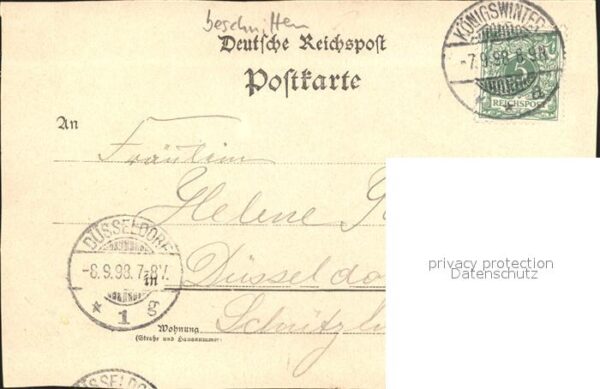 beschnitten
Deutsche Reichspost
Postkarte
KÖNIGSWINTER
-7.9.98. 8-9N.
* * a
REICHSPOST
An
Fräulein
Helene
privacy protection
Datenschutz
DÜSSELDORF
-8.9.98. 7-8V.
* 1 g
in
Düsseldo
Wohnung
(Straße und Hausnummer)
DÜSSELDO